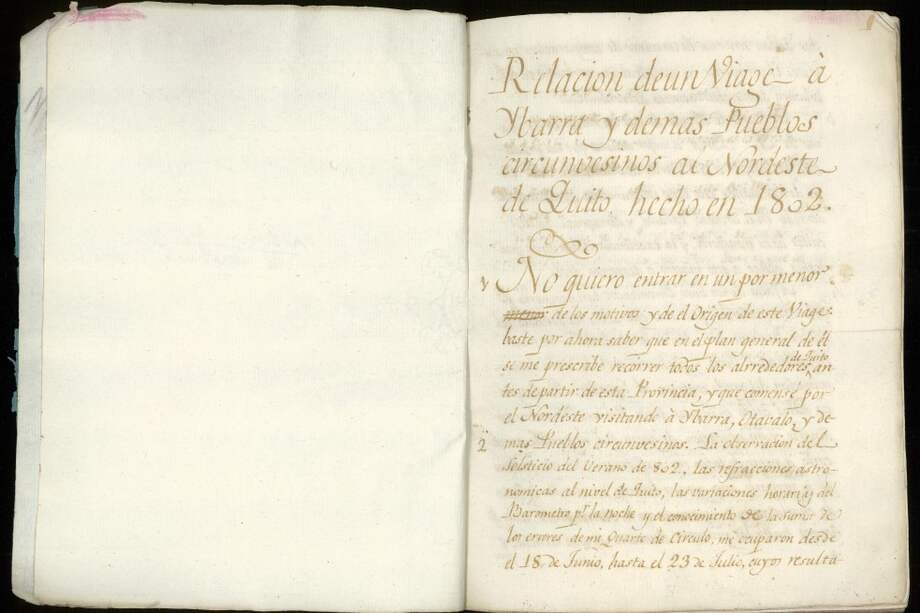 Relacion de un Viage à
Ybarra y demas Pueblos
circunvesinos al Nordeste
de Quito, hecho en 1802.
1 No quiero entrar en un por menor
menor de los motivos y de el Origen de este Viage:
baste por ahora saber que en el plan general de él
se me prescribe recorrer todos los alrrededores de Quito, an-
tes de partir de esta Provincia, y que comensé por
el Nordeste visitando à Ybarra, Otavalo, y de-
2 mas Pueblos circunvesinos. La observacion del
Solsticio del Verano de 802, las refracciones astro-
nomicas al nivel de Quito, las variaciones horarias del
Barometro pr. la noche y el conocimiento de la suma de
los errores de mi Quarto de Circulo, me ocuparon desde
el 18 de Junio, hasta el 23 de Julio, cuyos resulta-